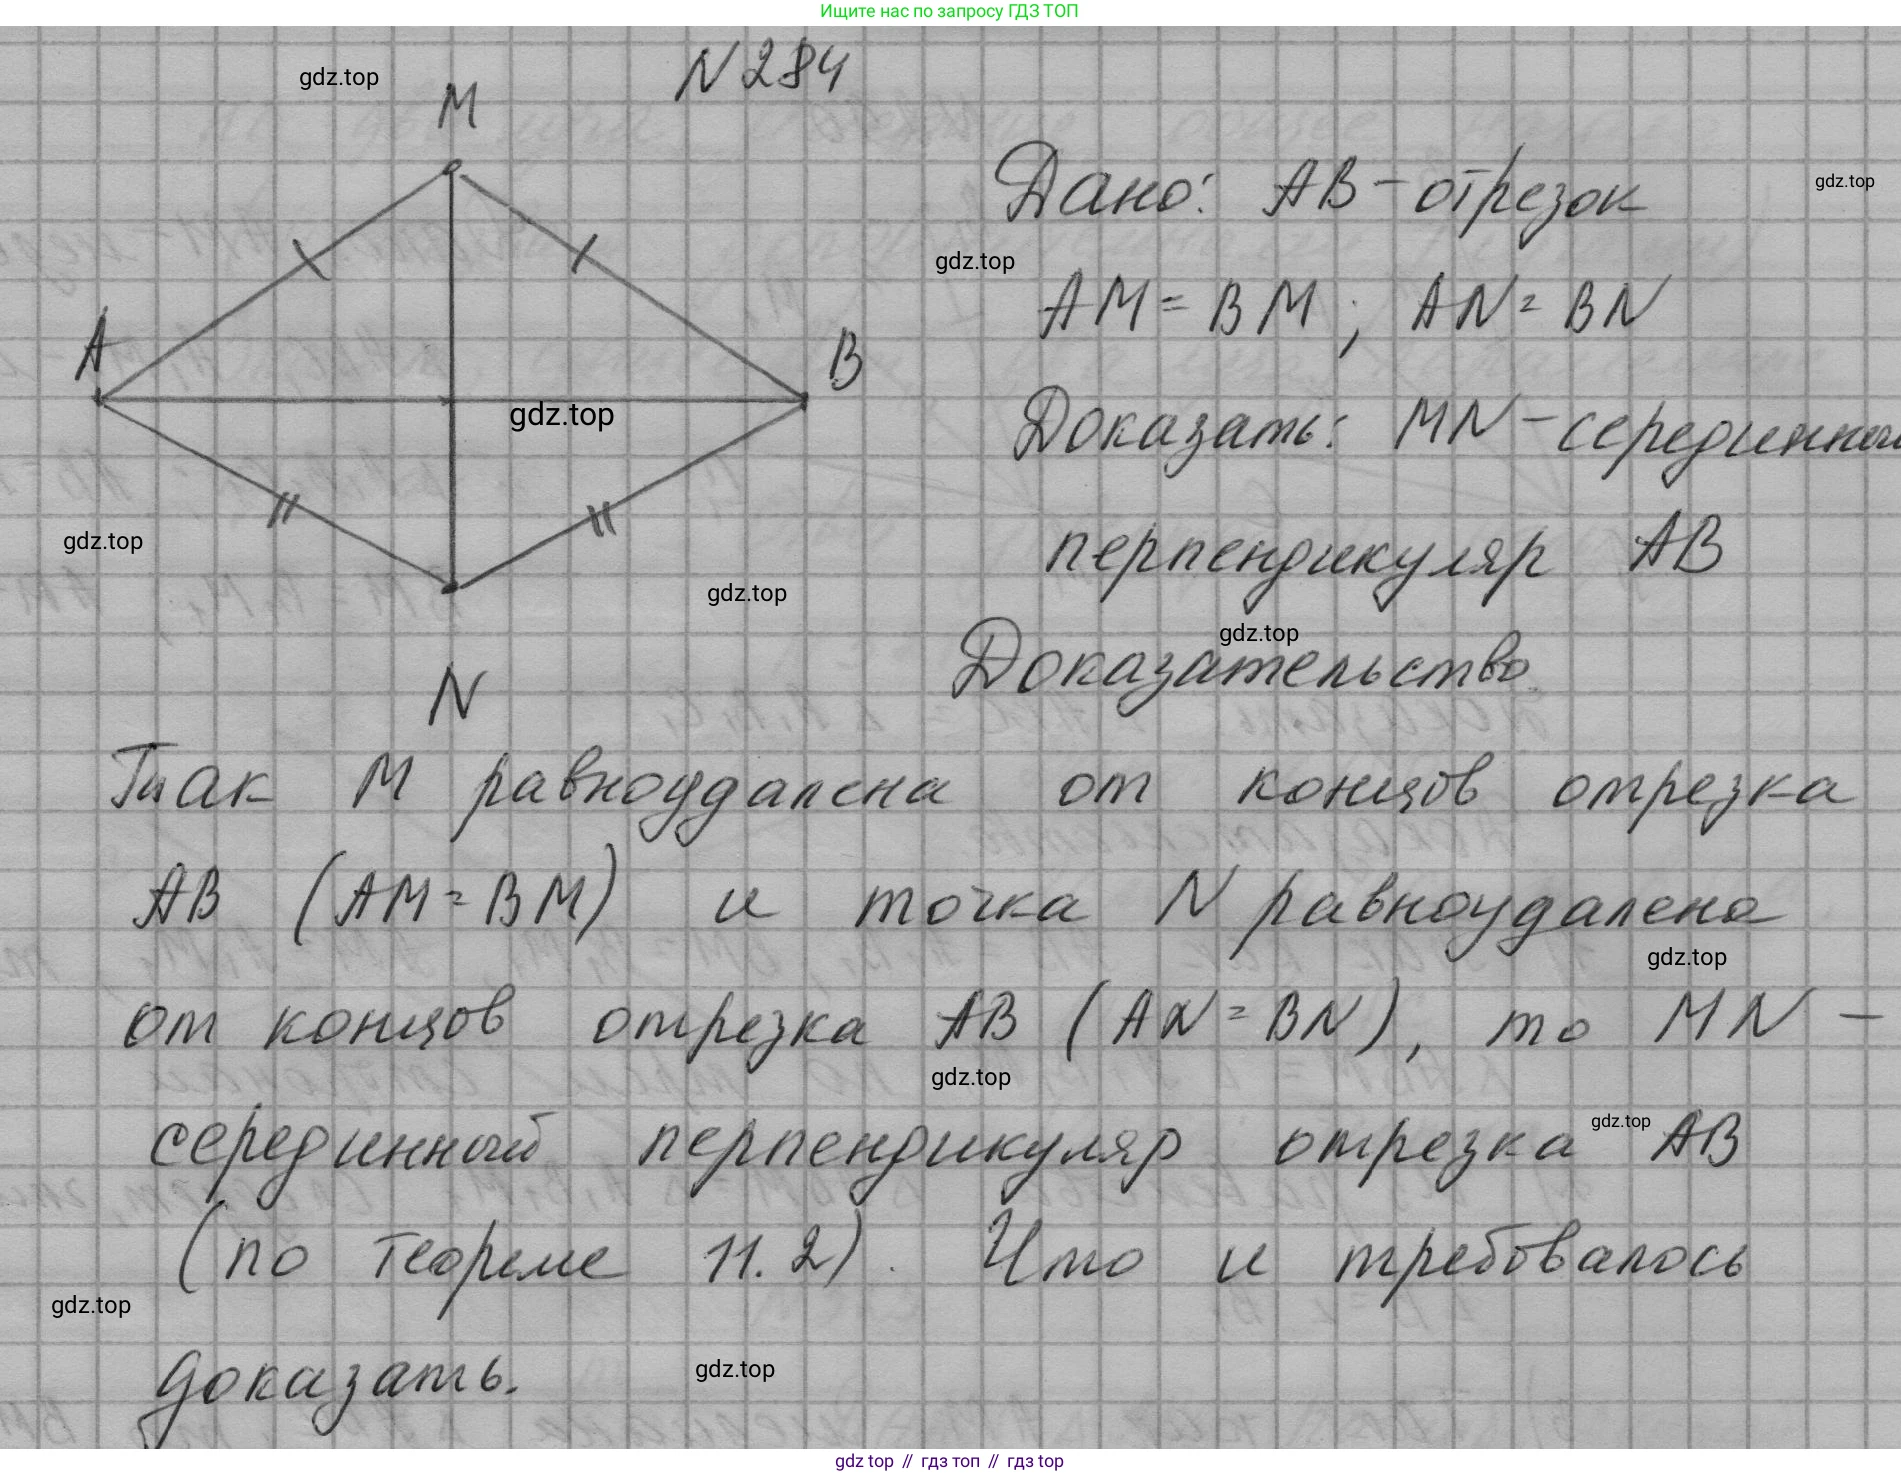 Ищите нас по запросу ГДЗ ТОП
N 284
gdz.top
M
Дано: AB - отрезок
gdz.top
gdz.top
AM = BM ; AN = BN
A
B
gdz.top
Доказать: MN - серединный
gdz.top
перпендикуляр AB
gdz.top
gdz.top
Доказательство
N
Так M равноудалена от концов отрезка
AB (AM = BM) и точка N равноудалена
gdz.top
от концов отрезка AB (AN = BN), то MN -
gdz.top
серединный перпендикуляр отрезка AB
gdz.top
(по теореме 11.2). Что и требовалось
gdz.top
доказать.
gdz.top
gdz top // гдз топ // гдз top